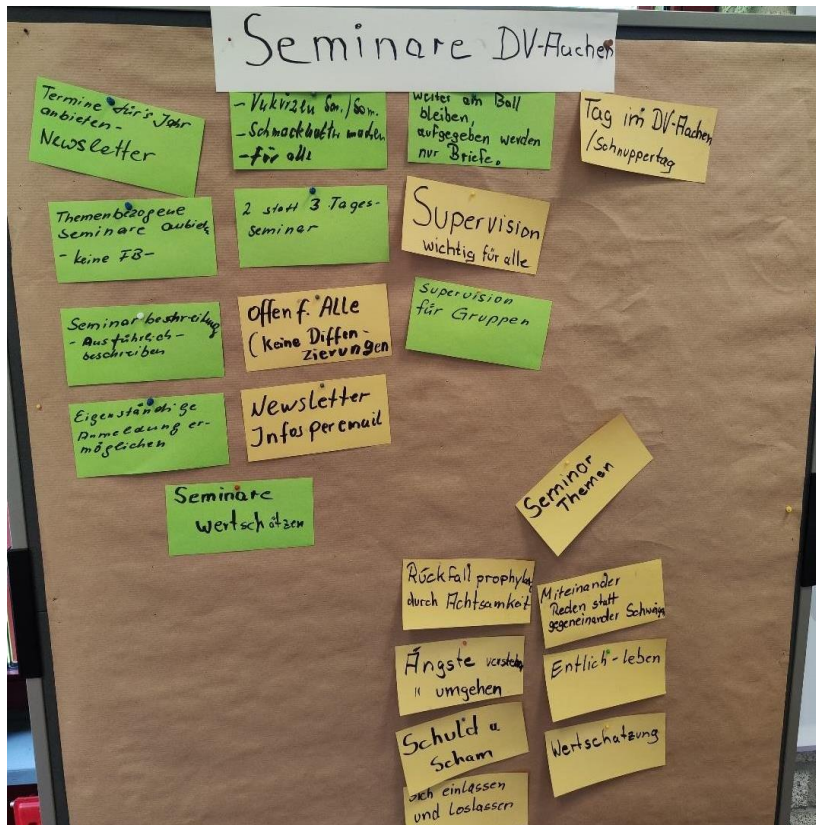 Seminare DV-Aachen
Termine für's Jahr
anbieten-
Newsletter
Themenbezogene
Seminare anbiet
- keine FB-
Seminarbeschreibung
- Ausführlich-
beschreiben
Eigenständige
Anmeldung er-
möglichen
Seminare
wertschätzen
- Schmackhaft machen
- für alle
2 statt 3 Tages-
seminar
Offen f. Alle
(keine Differen-
zierungen
Newsletter
Infos per email
weiter am Ball
bleiben,
aufgegeben werden
nur Briefe.
Supervision
wichtig für alle
Supervision
für Gruppen
Tag im DV-Aachen
/Schnuppertag
Seminar
Themen
Rückfallprophylax
durch Achtsamkeit
Ängste verstehen
" umgehen
Schuld u
Scham
Sich einlassen
und Loslassen
Miteinander
Reden statt
gegeneinander Schweige
Entlich-leben
Wertschätzung